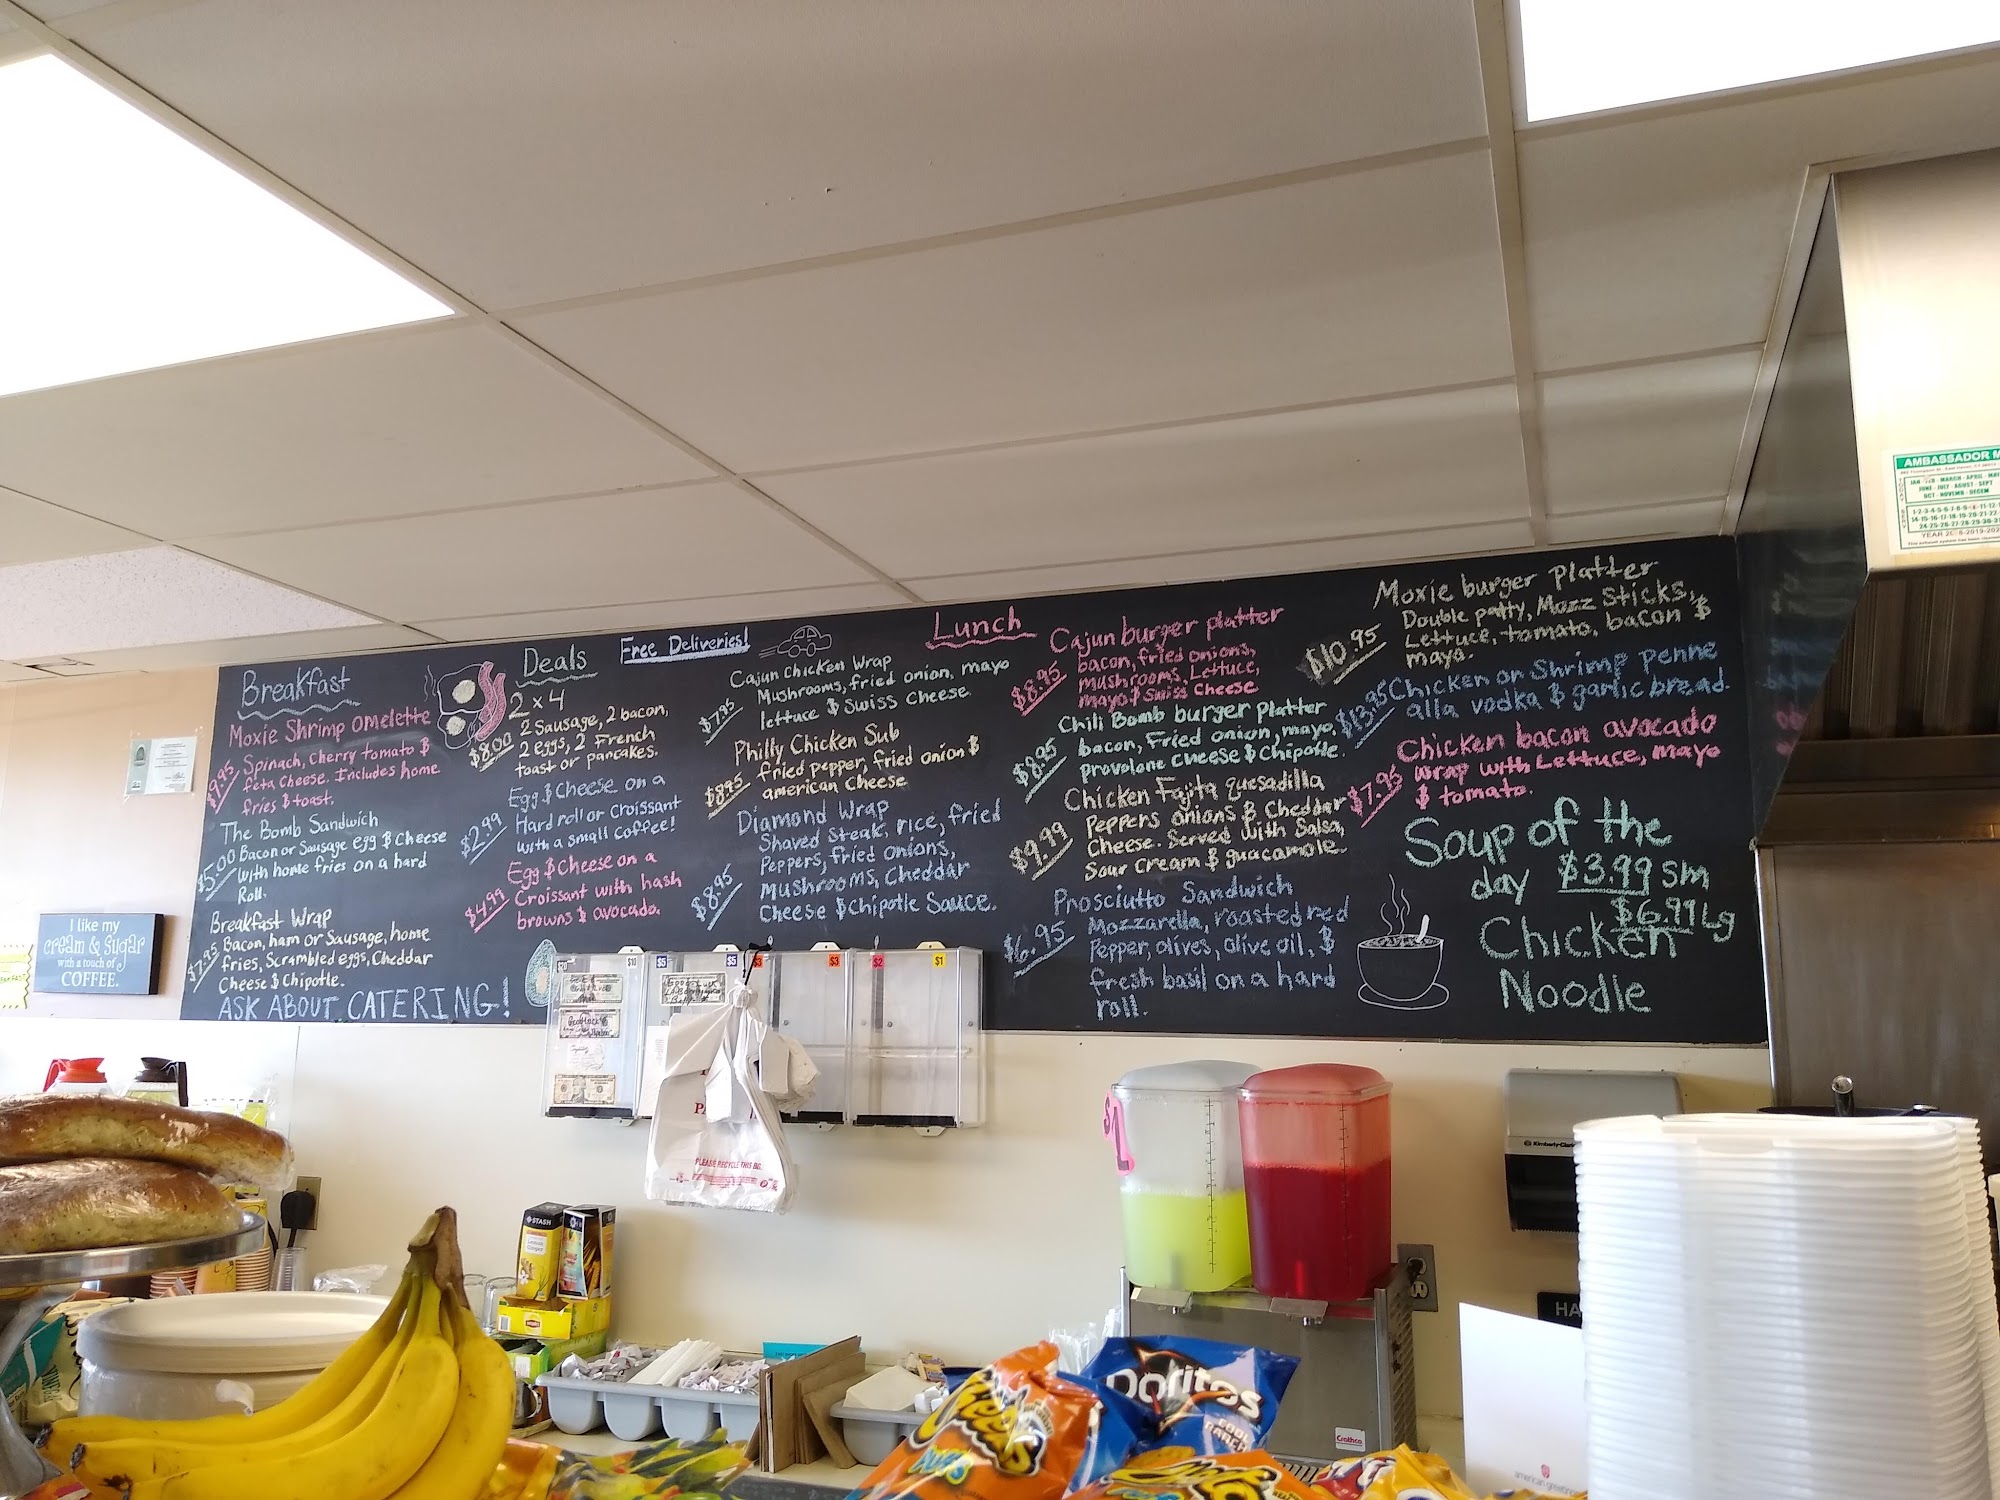 Breakfast
Moxie Shrimp omelette
$9.95
Spinach, Cherry tomato &
feta Cheese. Includes home
fries & toast.
The Bomb Sandwich
$5.00
Bacon or Sausage egg & Cheese
with home fries on a hard
Roll.
Breakfast Wrap
$7.95
Bacon, ham or Sausage, home
fries, Scrambled eggs, Cheddar
Cheese & Chipotle.
ASK ABOUT CATERING!
Deals
2 x 4
$8.00
2 Sausage, 2 bacon,
2 eggs, 2 French
toast or pancakes.
Egg & Cheese on a
$2.99
Hard roll or Croissant
with a small coffee!
Egg & Cheese on a
$4.99
Croissant with hash
browns & avocado.
Free Deliveries!
Lunch
Cajun Chicken Wrap
$7.95
Mushrooms, fried onion, mayo
lettuce & Swiss Cheese.
Philly Chicken Sub
$8.95
fried pepper, fried onion &
american Cheese
Diamond Wrap
$8.95
Shaved Steak, rice, fried
Peppers, fried onions,
Mushrooms, Cheddar
Cheese & Chipotle Sauce.
Cajun burger platter
$8.95
bacon, fried onions,
mushrooms, Lettuce,
mayo & Swiss Cheese
Chili Bomb burger Platter
$8.95
bacon, Fried onion, mayo,
provolone Cheese & Chipotle.
Chicken Fajita quesadilla
$9.99
Peppers onions & Cheddar
Cheese. Served with Salsa,
Sour Cream & guacamole.
Prosciutto Sandwich
$6.95
Mozzarella, roasted red
Pepper, olives, olive oil, &
fresh basil on a hard
roll.
Moxie burger Platter
$10.95
Double patty, Mozz Sticks,
Lettuce, tomato, bacon &
mayo.
$13.95
Chicken or Shrimp Penne
alla vodka & garlic bread.
Chicken bacon avocado
$7.95
Wrap with Lettuce, mayo
& tomato.
Soup of the
day $3.99 Sm
$6.99 Lg
Chicken
Noodle
I like my
cream & sugar
with a touch of
COFFEE.
$10
$5
$5
$3
$3
$2
$1
PLEASE RECYCLE THIS BAG.
$1
STASH
Lemon
Ginger
Kimberly-Clark
Crathco
HA
american greetings
Cheetos
Doritos
COOL
RANCH
AMBASSADOR M
JAN FEB MARCH APRIL MAY
JUNE JULY AGUST SEPT
OCT NOVEMB DECEM